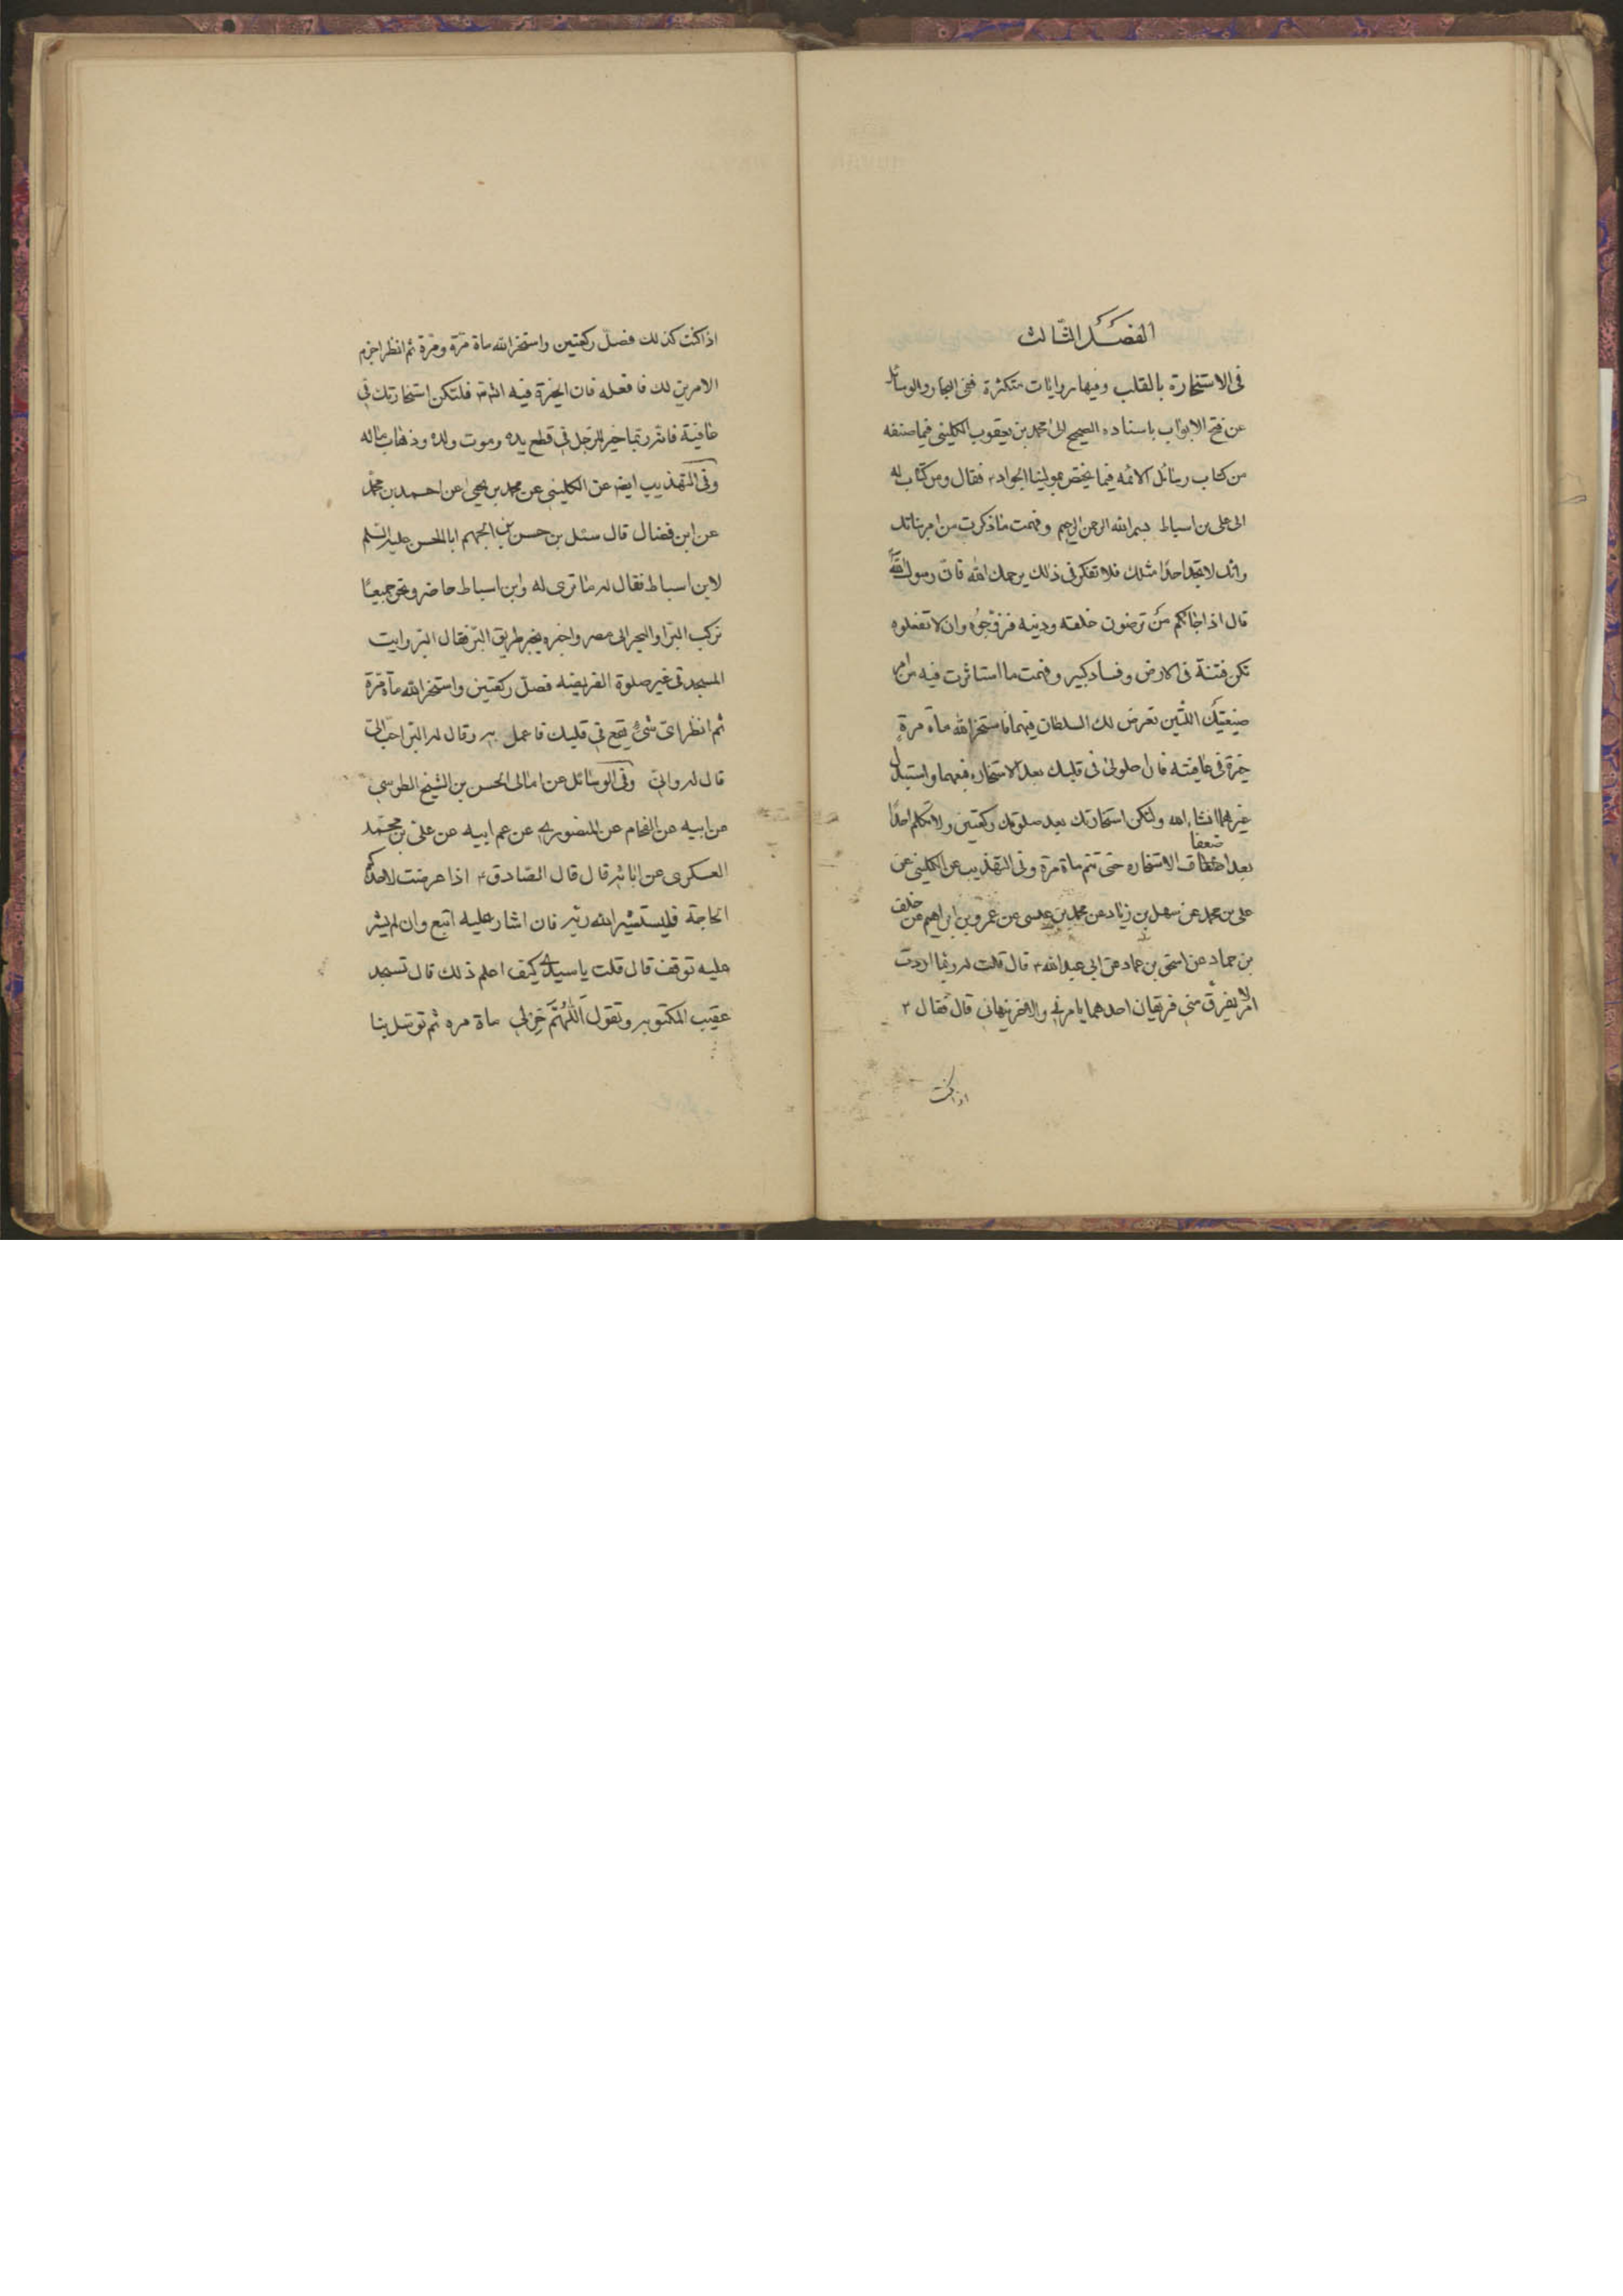 الفصل الثالث
فى الاستخارة بالقلب وفيها روايات متكثرة ففى البحار والوسائل
عن فتح الابواب باسناده الصحيح الى محمد بن يعقوب الكلينى فيما صنفه
من كتاب رسائل الائمه فيما يختص بمولينا الجواد ع فقال ومن كتاب له
الى على بن اسباط بسم الله الرحمن الرحيم وفهمت ما ذكرت من امر بناتك
وانك لا تجد احدا مثلك فلا تفكر فى ذلك يرحمك الله فان رسول الله
قال اذا جائكم من ترضون خلقه ودينه فزوجوه وان لا تفعلوه
تكن فتنة فى الارض وفساد كبير وفهمت ما استاثرت فيه من امر
ضيعتيك اللتين تعرض لك السلطان فيهما فاستخر الله ماة مرةٍ
خيرة فى عافيته فان احلولى فى قلبك بعد الاستخاره فبعهما واستبدل
غيرهما انشاء الله ولتكن استخارتك بعد صلوتك ركعتين ولا تكلم احدًا
بعد اضعاف الاستخاره حتى تتم ماة مرة وفى التهذيب عن الكلينى عن
على بن محمد عن سهل بن زياد عن محمد بن عيسى عن عمرو بن ابراهيم عن خلف
بن حماد عن اسحق بن عمار عن ابى عبد الله ع قال قلت له ربما اردت
الامر يفرق منى فريقان احدهما يامرنى والاخر ينهانى قال فقال ع
اذا كنت
اذا كنت كذلك فصلّ ركعتين واستخر الله ماة مرّة ومرة ثم انظر اجزم
الامرين لك فافعله فان الخيرة فيه انشاء فلتكن استخارتك فى
عافية فانه ربما خير للرجل فى قطع يده وموت ولده وذهاب ماله
وفى التهذيب ايضا عن الكلينى عن محمد بن يحيى عن احمد بن محمد
عن ابن فضال قال سئل بن حسن بن الجهم ابا الحسن عليه السلم
لابن اسباط فقال له ما ترى له وابن اسباط حاضر ونحن جميعًا
نركب البرّ او البحر الى مصر واخبره بخبر طريق البرّ فقال البر وايت
المسجد فى غير صلوة الفريضه فصلّ ركعتين واستخر الله مأة مرة
ثم انظر اى شىء يقع فى قلبك فاعمل به وقال له البر احبّ الىّ
قال له والىّ وفى الوسائل عن امالى الحسن بن الشيخ الطوسى
عن ابيه عن الفحام عن المنصورى عن عم ابيه عن على بن محمد
العسكرى عن ابائه قال قال الصّادق ع اذا عرضت لاحدكم
الحاجة فليستشير الله ربّه فان اشار عليه اتبع وان لم يشر
عليه توقف قال قلت يا سيدى كيف اعلم ذلك قال تسجد
عقيب المكتوبه وتقول اَللّهُمَّ خِرْلى ماة مره ثم توسّل بنا